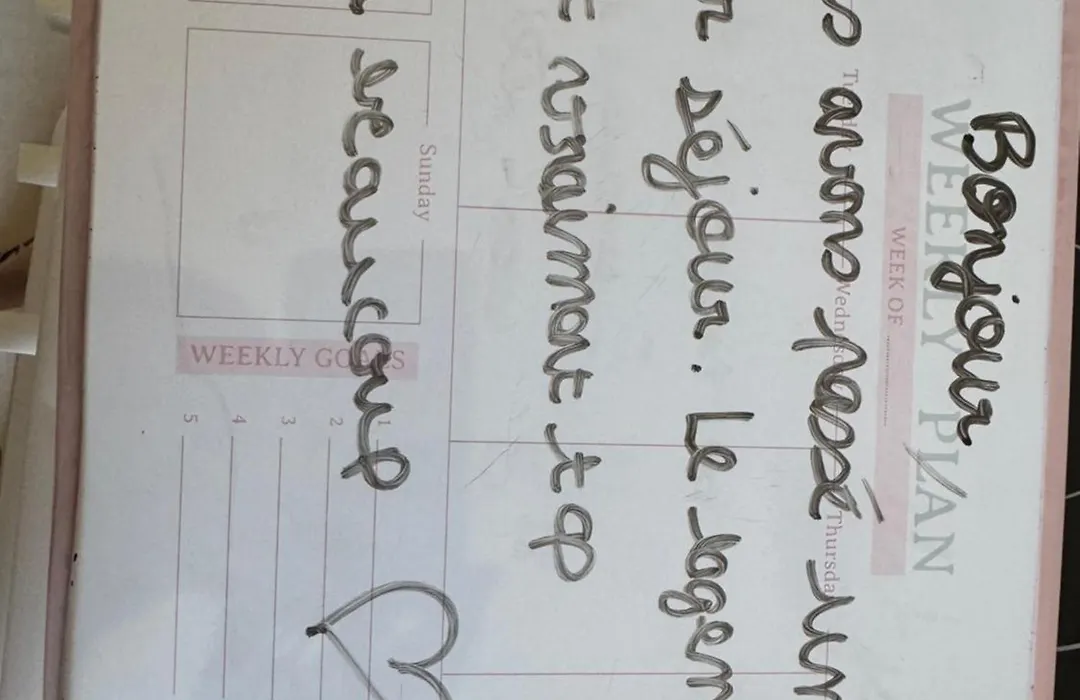 Bonjour
WEEKLY PLAN
WEEK OF
avons passé un
séjour. Le logem
vraiment top
beaucoup
Wednesda
Thursda
Sunday
WEEKLY GOALS
1
2
3
4
5